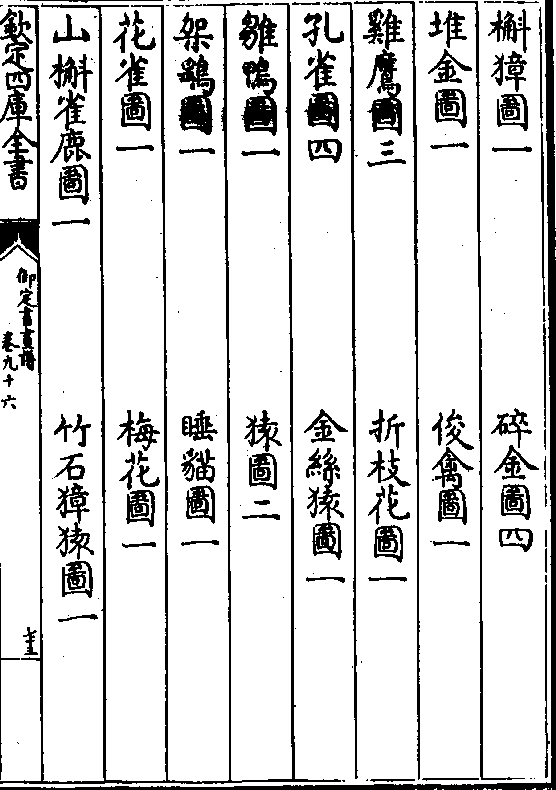 槲獐圖一　碎金圖四
堆金圖一　俊禽圖一
雞鷹圖三　折枝花圖一
孔雀圖四　金絲猿圖一
雛鴨圖一　猿圖二
架鷂圖一　睡貓圖一
花雀圖一　梅花圖一
山槲雀鹿圖一　竹石獐猿圖一
欽定四庫全書　御定書畫譜　卷九十六